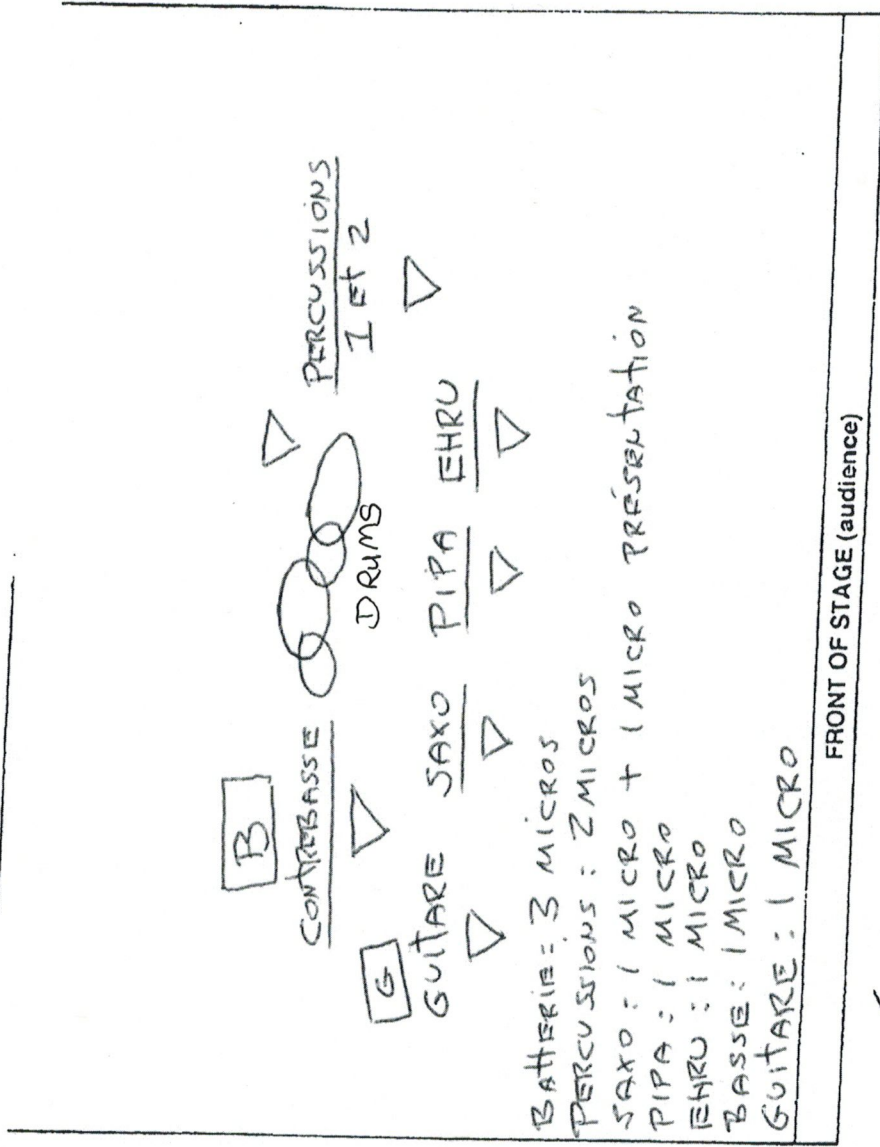 B
CONTREBASSE
DRUMS
PERCUSSIONS
1 Et 2
G
GUITARE SAXO PIPA EHRU
BAttERiE : 3 MICROS
PERCUSSIONS : 2 MICROS
SAXO : 1 MICRO + 1 MICRO PRÉSENtAtiON
PIPA : 1 MICRO
EHRU : 1 MICRO
BASSE : 1 MICRO
GUitARE : 1 MICRO
FRONT OF STAGE (audience)